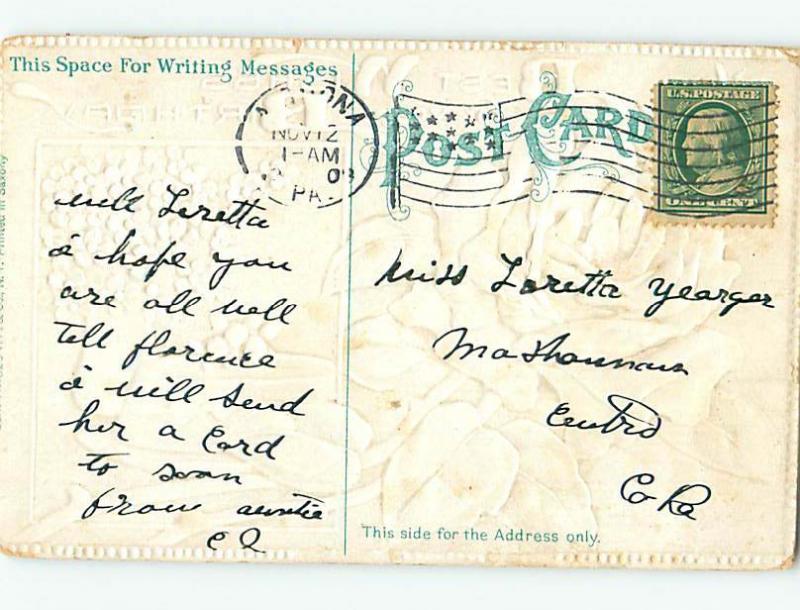 This Space For Writing Messages
POST CARD
NOV 12
1-AM
PA.
U.S. POSTAGE
ONE CENT
well Loretta
i hope you
are all well
tell florence
i will send
her a Card
to soon
from auntie
Miss Loretta Yearger
Moshannon
Centre
Co Pa
This side for the Address only.